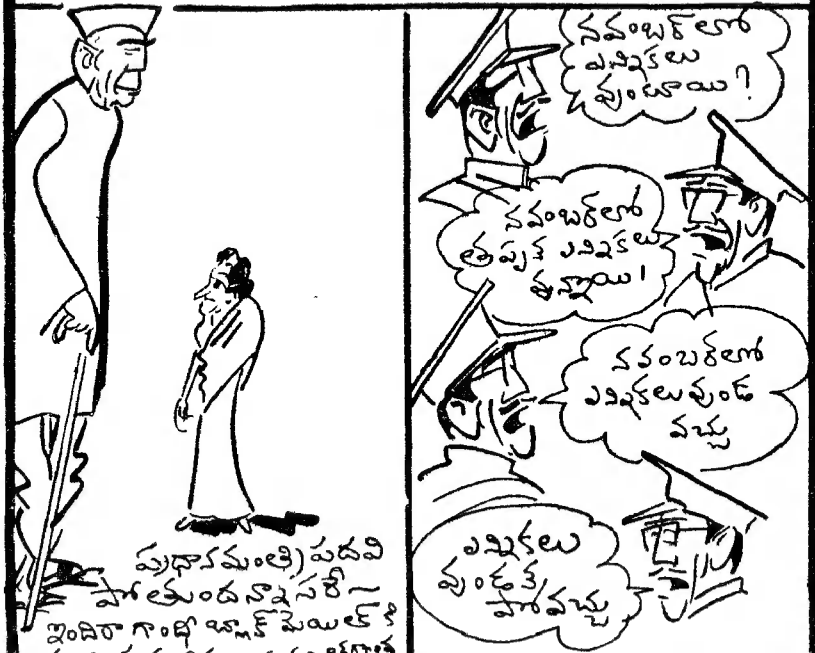 ప్రధానమంత్రి పదవి
పోతుందన్నా సరే —
ఇందిరా గాంధీ బ్లాక్ మెయిల్ కి
నవంబర్ లో
ఎన్నికలు
వుంటాయి?
నవంబర్‌లో
తప్పక ఎన్నికలు
వున్నాయి!
నవంబర్‌లో
ఎన్నికలు వుండ
వచ్చు
ఎన్నికలు
వుండక
పోవచ్చు